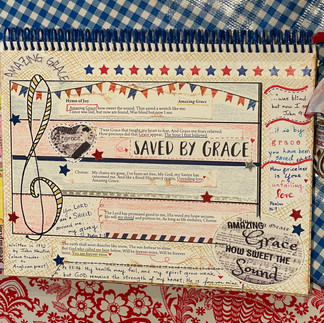 AMAZING GRACE
Hymn of Joy Amazing Grace
Amazing Grace! how sweet the sound, That saved a wretch like me!
I once was lost, but now am found, Was blind but now I see.
'Twas Grace that taught my heart to fear, And Grace my fears relieved.
How precious did that Grace appear, The hour I first believed.
SAVED BY GRACE
Chorus: My chains are gone, I've been set free, My God, my Savior has
ransomed me. And like a flood His mercy reigns, Unending love,
Amazing Grace.
The Lord has promised good to me, His word my hope secures.
He will my shield and portion be, As long as life endures.
Chorus:
The earth shall soon dissolve like snow, The sun forbear to shine.
But God who called me here below,
You are forever mine.
The LORD
is my
SHIELD
written in 1772
by John Newton
(slave trader
to
Anglican priest)
My health may fail, and my spirit grow weak,
but God remains the strength of my heart, He is mine forever
AMAZING
Grace
HOW SWEET THE
Sound
...was blind
but now I see
John 9:
it is by
grace
you have been
saved
How priceless
is your
unfailing
love
Psalm